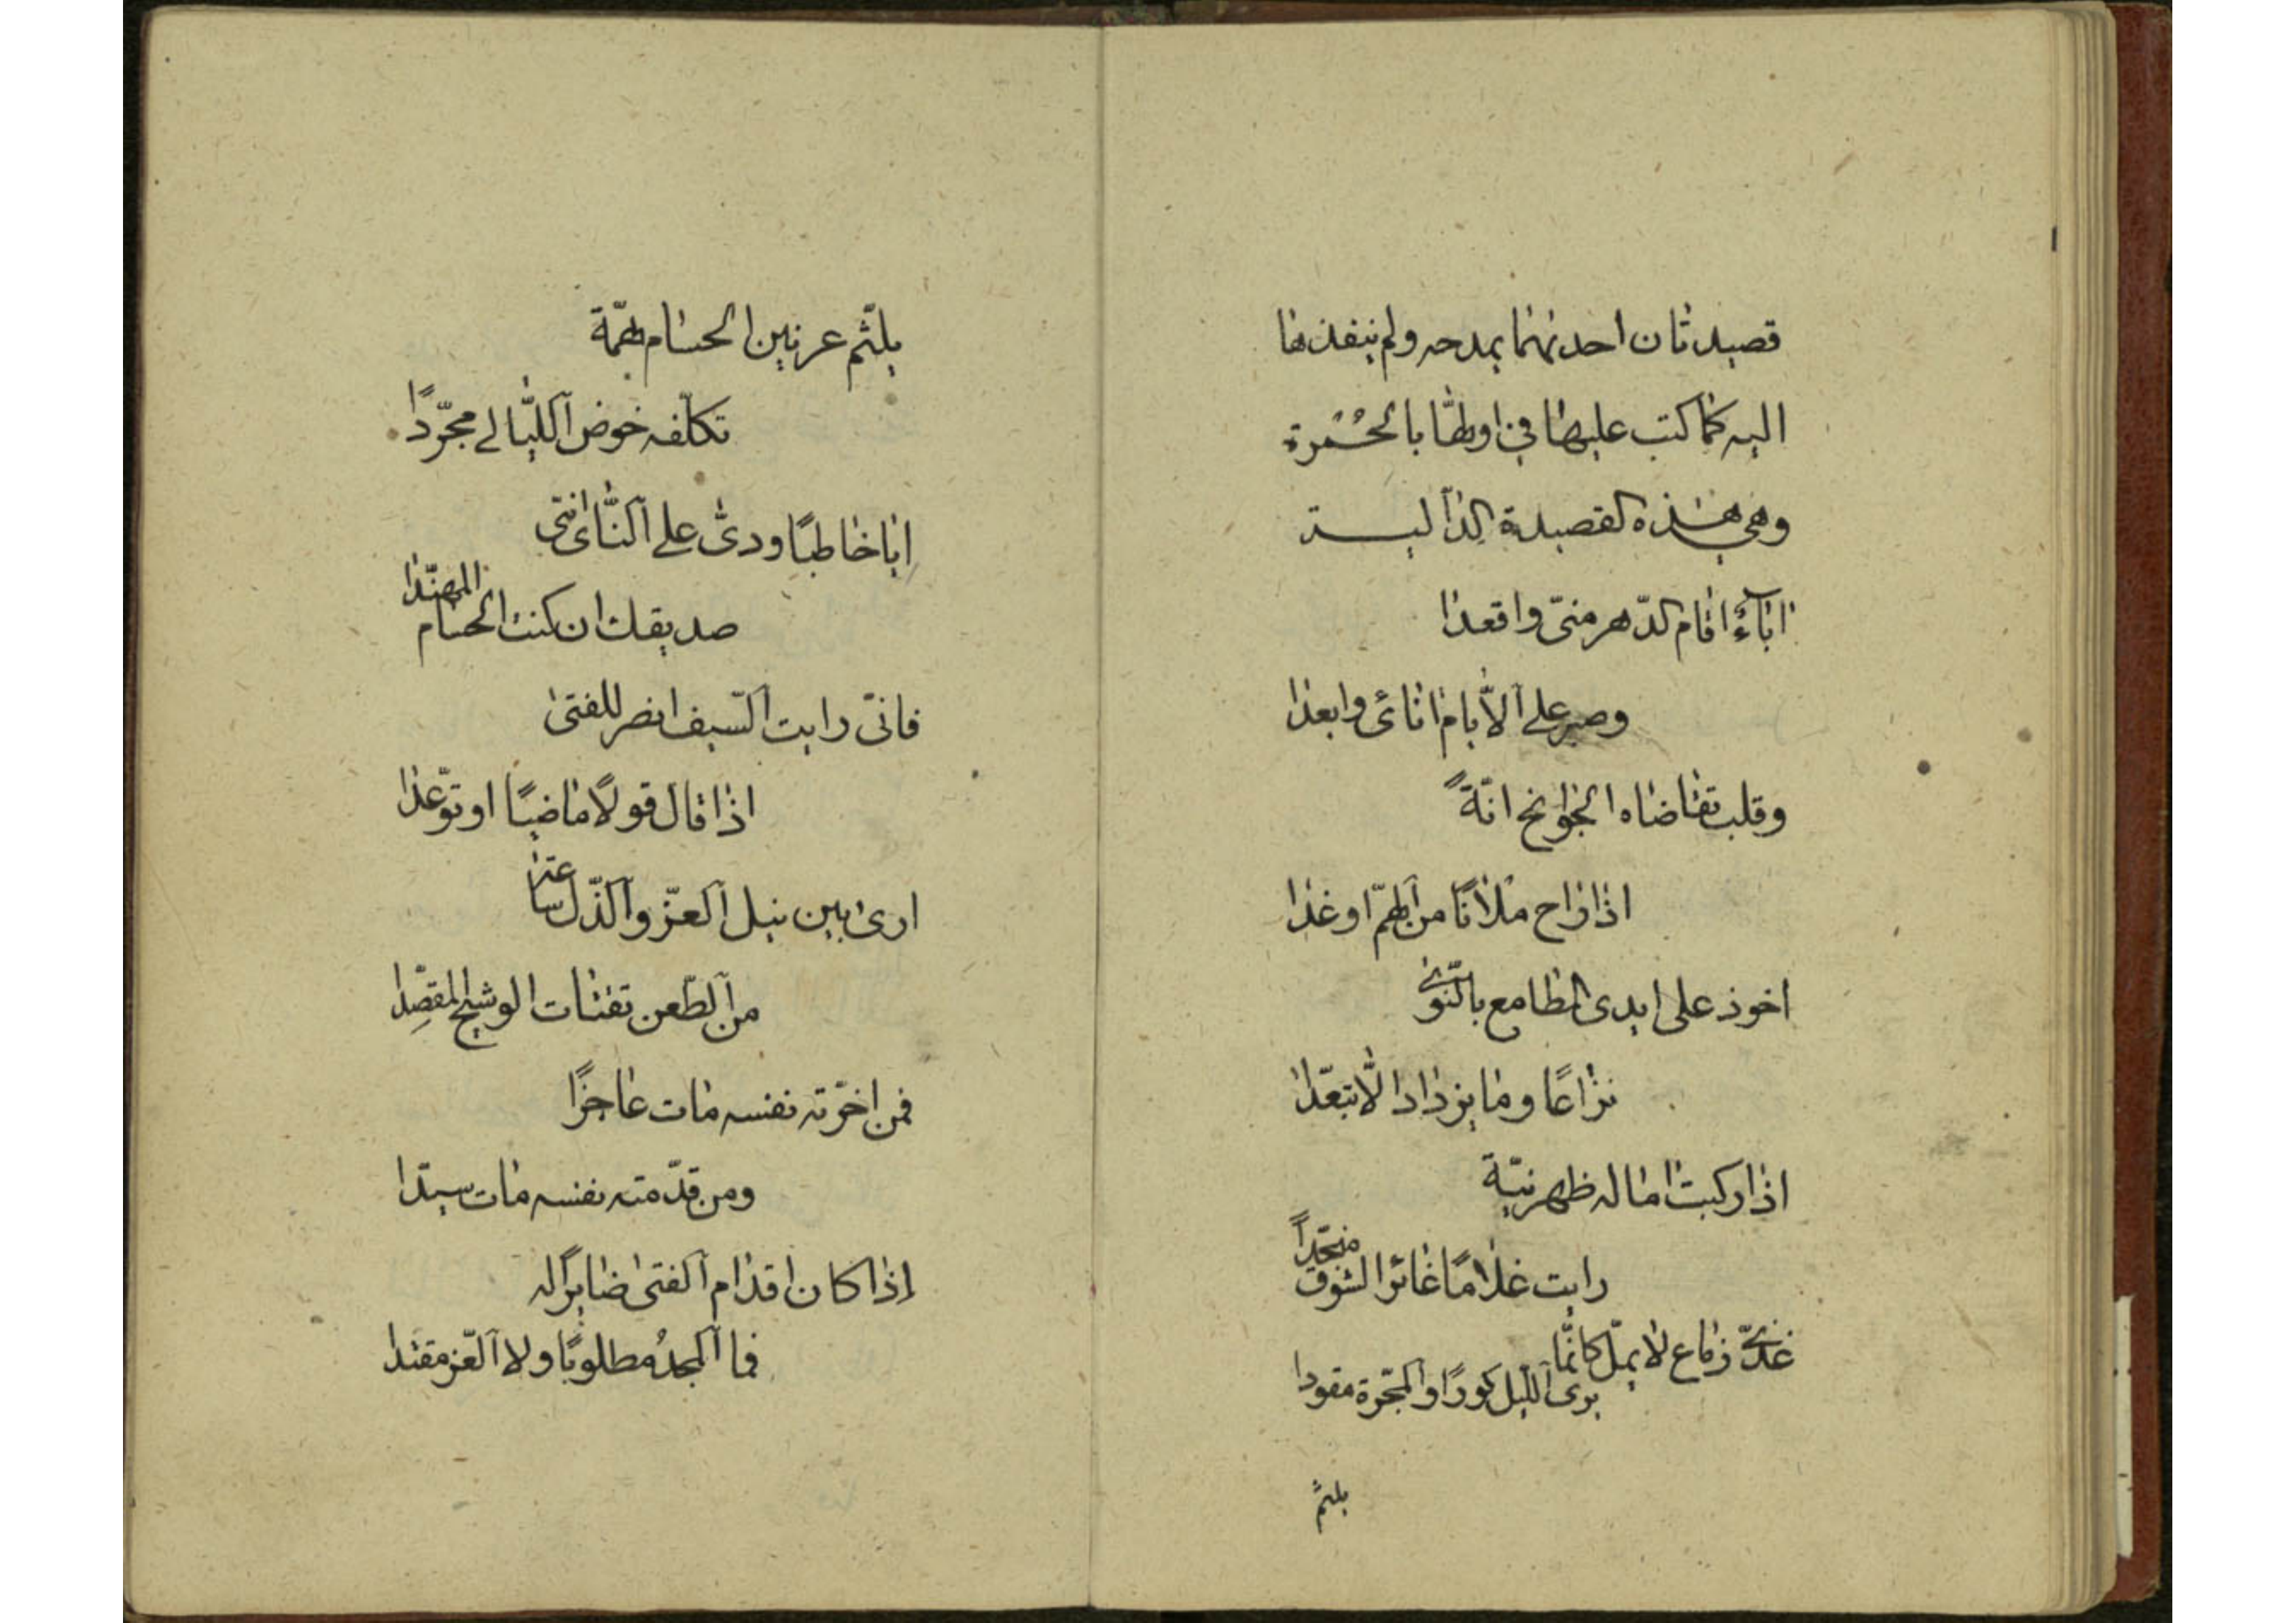 قصيدتان احدىهما بمدحه ولم ينفذها
اليه كما كتب عليها في اولها بالحُمرة
وهي هذه القصيدة الدالية
اباءٌ اقام الدّهر منّي واقعدا
وصبر على الأيام انأى وابعدا
وقلب تقاضاه الجوانح انّةً
اذا راح ملآنًا من الهمّ او غدا
اخوذ على ايدى المطامع بالنّوى
نزاعًا وما يزداد الّا تبعّدا
اذا ركبت اماله ظهر نيّة
رايت غلامًا غائر الشوق منجدًا
غذىّ زماع لا يملّ كانّما
يرى الليل كورًا والمجرّة مقودا
يلثّم
يلثّم عرنين الحسام بهمّة
تكلّفه خوض الليالى مجرّدًا
ايا خاطبًا ودىّ على النّاى انّنى
صديقك ان كنت الحسام المهنّدا
فانّى رايت السّيف انصر للفتى
اذا قال قولًا ماضيًا او توعّدا
ارى بين نيل العزّ والذّل ساعة
من الطّعن تقتات الوشيج المقصّدا
فمن اخّرته نفسه مات عاجزًا
ومن قدّمته نفسه مات سيّدا
اذا كان اقدام الفتى ضايرًا له
فما المجدُ مطلوبًا ولا العزّ مقتدا